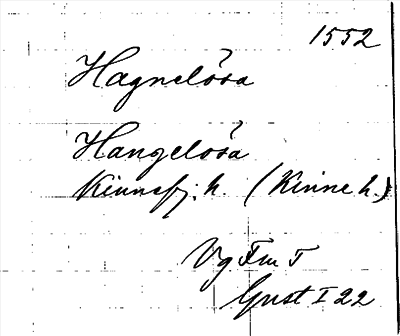 1552
Hagnelösa
Hangelösa
Kinnefj. h. (Kinne h.)
Vg Fm T
Gust I 22